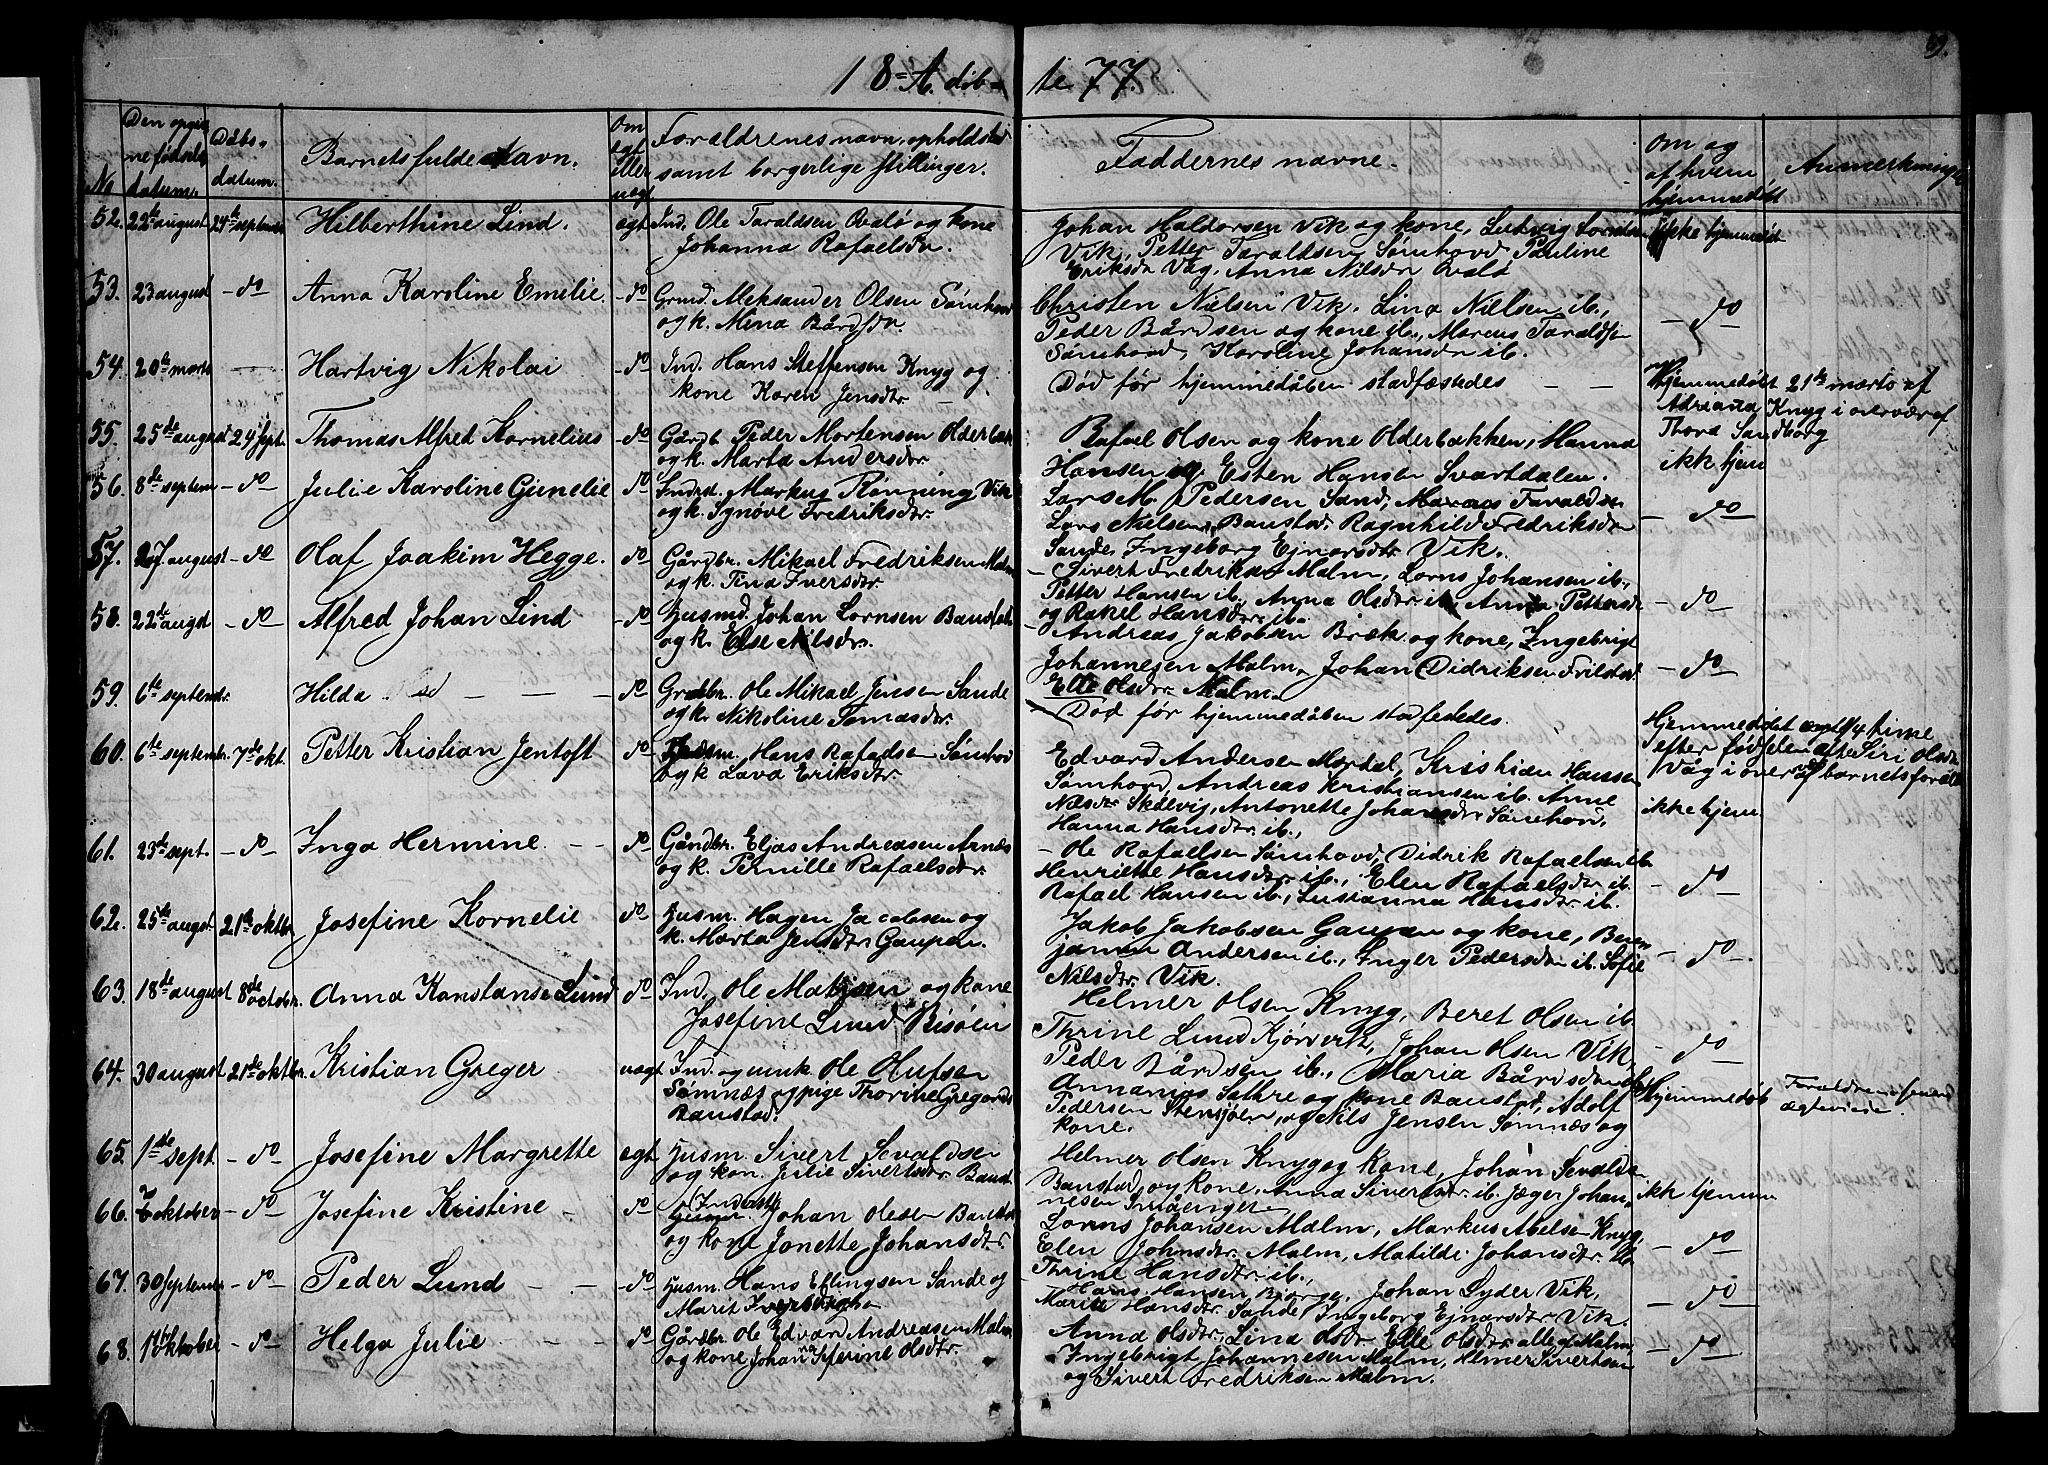 18 A. døb-
te 77.
No
Den opgivne fødsels datum.
Døbs-datum.
Barnets fulde Navn.
Om egt eller uegt
Forældrenes navn, opholdsted
samt borgerlige stillinger.
Faddernes navne.
Om og af hvem hjemmedøbt
Anmerkninger
52. 22de august 24de septemb. Hilberthine Lind. egt Ind. Ole Taraldsen Ovalø og kone
Johanna Rafaelsdr.
Johan Haldorsen Vik og kone, Ludvig Lorntsen
Vik, Petter Taraldsen Sømhovd Pauline
Eriksdr Våg, Anna Nilsdr Ovalø
Ikke hjemmedøbt
53. 23 august - do Anna Karoline Emelie. - do Grmd. Aleksander Olsen Sømhovd
og k. Mina Bårdsdr.
Christen Nielsen Vik. Lina Nielsen ib.,
Peder Bårdsen og kone ib., Marcus Taraldsen
Sømhovd, Karoline Johansdr ib.
- do -
54. 20de marts - Hartvig Nikolai - do Ind. Hans Steffensen Knyg og
kone Karen Jensdtr.
Død før hjemmedåben stadfæstedes
hjemmedøbt 21de marts af
Adriana Knyg i overvær af
Thora Sandborg
55. 25de august 24 sept. Thomas Alfred Kornelius - do Gårdb. Peder Mortensen Olderbæk
og k. Marta Andersdtr.
Rafael Olsen og kone Olderbækken, Hanna
Hansen ib. Esten Hansen Svartdalen.
ikk hjem
56. 8de septem - do - Julie Karoline Gunelie do Indrd. Markus Rønning, Vik
og k. Synøve Fredriksdtr.
Lars M. Pedersen Sand, Marcus Taraldsen
Lars Nielsen, Baustad Ragnhild Fredriksdr
Sande, Ingeborg Ejnarsdtr Vik.
- do -
57. 27. august - do - Olaf Joakim Hegge. do Gårdbr. Mikael Fredriksen Malm
og k. Tina Iversdtr.
Sivert Fredriks. Malm, Lorns Johansen ib.,
Petter Hansen ib., Anna Olsdtr. ib., Anna Pettersdr
og Rakel Hansdtr. ib.
- do -
58. 22de augst - do - Alfred Johan Lind - do Husmd. Johan Lornsen Baustad
og k. Else Nilsdtr.
Andreas Jakobsen Bræk og kone, Ingebrigt
Johannesen Malm, Johan Didriksen Frilstad.
Elle Olsdtr. Malm.
- do -
59. 6te septembr. Hilda - - - do Grdbr. Ole Mikael Jensen Sande
og k. Nikoline Tomasdtr.
Død før hjemmedåben stadfestedes.
Hjemmedøbt 1/4 time
efter fødselen af Siri Olsdr
Våg i overvær af barnets foræld.
60. 6te septembr. 7de okt. Petter Kristian Jentoft do Hans Rafaelsen Sømhovd
og k. Lava Eriksdtr.
Edvard Andersen Mørdal, Kristian Hansen
Sømhovd, Andreas Kristiansen ib. Anne
Nilsdtr Skålvig, Antonette Johansdtr Sømhovd.
Hanna Hansdtr. ib.,
ikke hjem.
61. 23de sept. - do - Inga Hermine. - - do Gårdbr. Eljas Andreasen Arnæs
og k. Pernille Rafaelsdtr.
Ole Rafaelsen Sømhovd, Didrik Rafaelsen ib
Henriette Hansdtr. ib., Elen Rafaelsdtr ib.
Rafael Hansen ib., Susanna Hansdtr. ib.
- do -
62. 25de augst 21de oktbr. Josefine Kornelie do Husm. Hagen Jacobsen og
k. Marta Jensdtr Gaupen.
Jakob Jakobsen Gaupen og kone, Ben-
jamin Andersen ib., Inger Pedersdtr ib. Sofie
Nilsdtr. Vik.
- do -
63. 18de august 8de octobr. Anna Konstanse Lund do Ind. Ole Matisen og kone
Josefine Lund Risøen
Helmer Olsen Knyg, Beret Olsen ib.
Thrine Lund Kjørvik, Johan Olsen Vik,
Peder Bårdsen ib., Maria Bårdsdtr
- do -
64. 30 august 21de oktbr. Kristian Greger uegt Ind. og umk Ole Olufsen
Sømnæs og pige Thorine Gregorsd.
Baustad.
Annanias Sathre og kone Baustad, Adolf
Pedersen Stensjøen, og Nils Jensen Sømnæs og
kone.
Hjemmedøb
Forældrene senere
ægteviede.
65. 1ste sept. - do - Josefine Margrette egt Husm. Sivert Sevaldsen
og kon. Julie Sivertsdtr. Baust.
Helmer Olsen Knyg og kone, Johan Sevaldsen
Baustad, og kone. Anna Sivertsdtr. ib. Jæger Johan-
nesen
ikk hjemm
66. 7 oktober - do - Josefine Kristine - do Inderst Johan Olesen Baustad
og kone Jonette Johansdtr.
Lorns Johansen Malm, Markus Abelsen Knyg,
Elen Johnsdtr. Malm, Matilde Johansdtr. ib
Thrine Hansdtr. ib.,
- do -
67. 30 september - do - Peder Lund - - do Husm. Hans Eflingsen Sande og
Marit Iversdtr
Hans Hansen Bjørge, Johan Lyder Vik,
Marie Hansdtr. Sande, Ingeborg Ejnarsdtr Vik.
- do -
68. 1 oktober - do Helga Julie - - do Gårdbr. Ole Edvard Andreasen Malm
og kone Johanna Seferine Olsdtr.
Anna Olsdtr, Lina Olsdtr. Elle Olsdtr alle af Malm,
Ingebrigt Johannesen Malm, Helmer Sivertsen
og Sivert Fredriksen Malm.
- do -